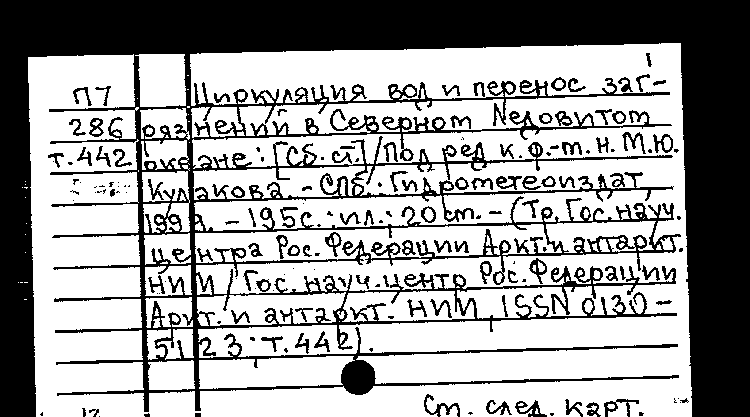 П7 Циркуляция вод и перенос заг-
286 рязнений в Северном Ледовитом
т.442 океане: [Сб. ст.] / Под ред к.ф.-м.н. М.Ю.
Кулакова. - СПб.: Гидрометеоиздат,
- 195с.: ил.; 20 см. - (Тр. Гос. науч.
центра Рос. Федерации Аркт. и антаркт.
НИИ / Гос. науч. центр Рос. Федерации
Аркт. и антаркт. НИИ, ISSN 0130-
5123; т.442).
См. след. карт.